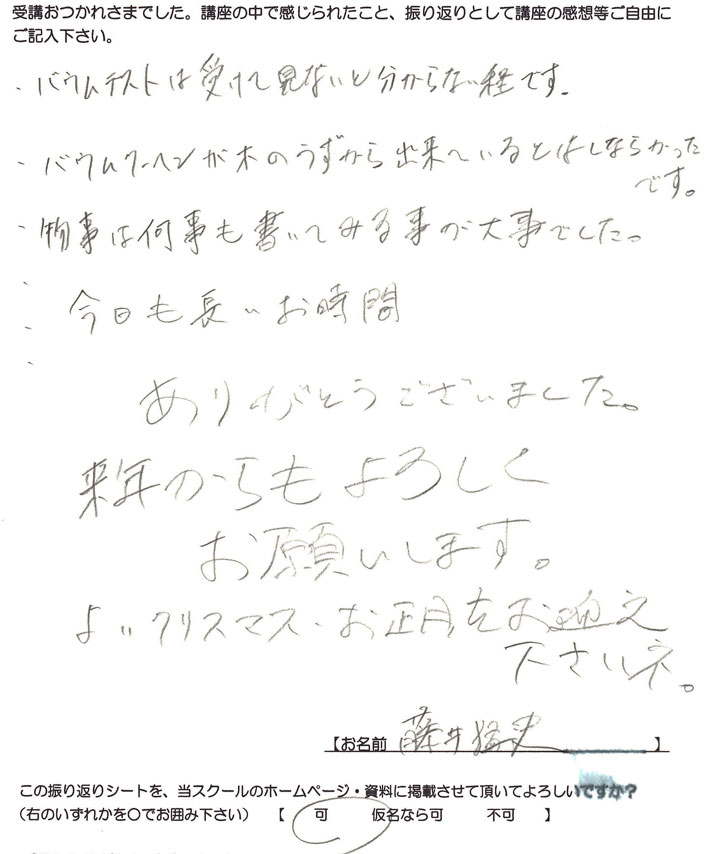 受講おつかれさまでした。講座の中で感じられたこと、振り返りとして講座の感想等ご自由に
ご記入下さい。
・バウムテストは受けて見ないと分からない経です.
・バウムクーヘンが木のうずから出来ているとはしならかった
です。
・物事は何事も書いてみる事が大事でした。
今日も長いお時間
ありがとうございました。
来年からもよろしく
お願いします。
よいクリスマス・お正月をお迎え
下さいネ。
【お名前 藤井 史 】
この振り返りシートを、当スクールのホームページ・資料に掲載させて頂いてよろしいですか?
(右のいずれかを〇でお囲み下さい) 【 可 仮名なら可 不可 】